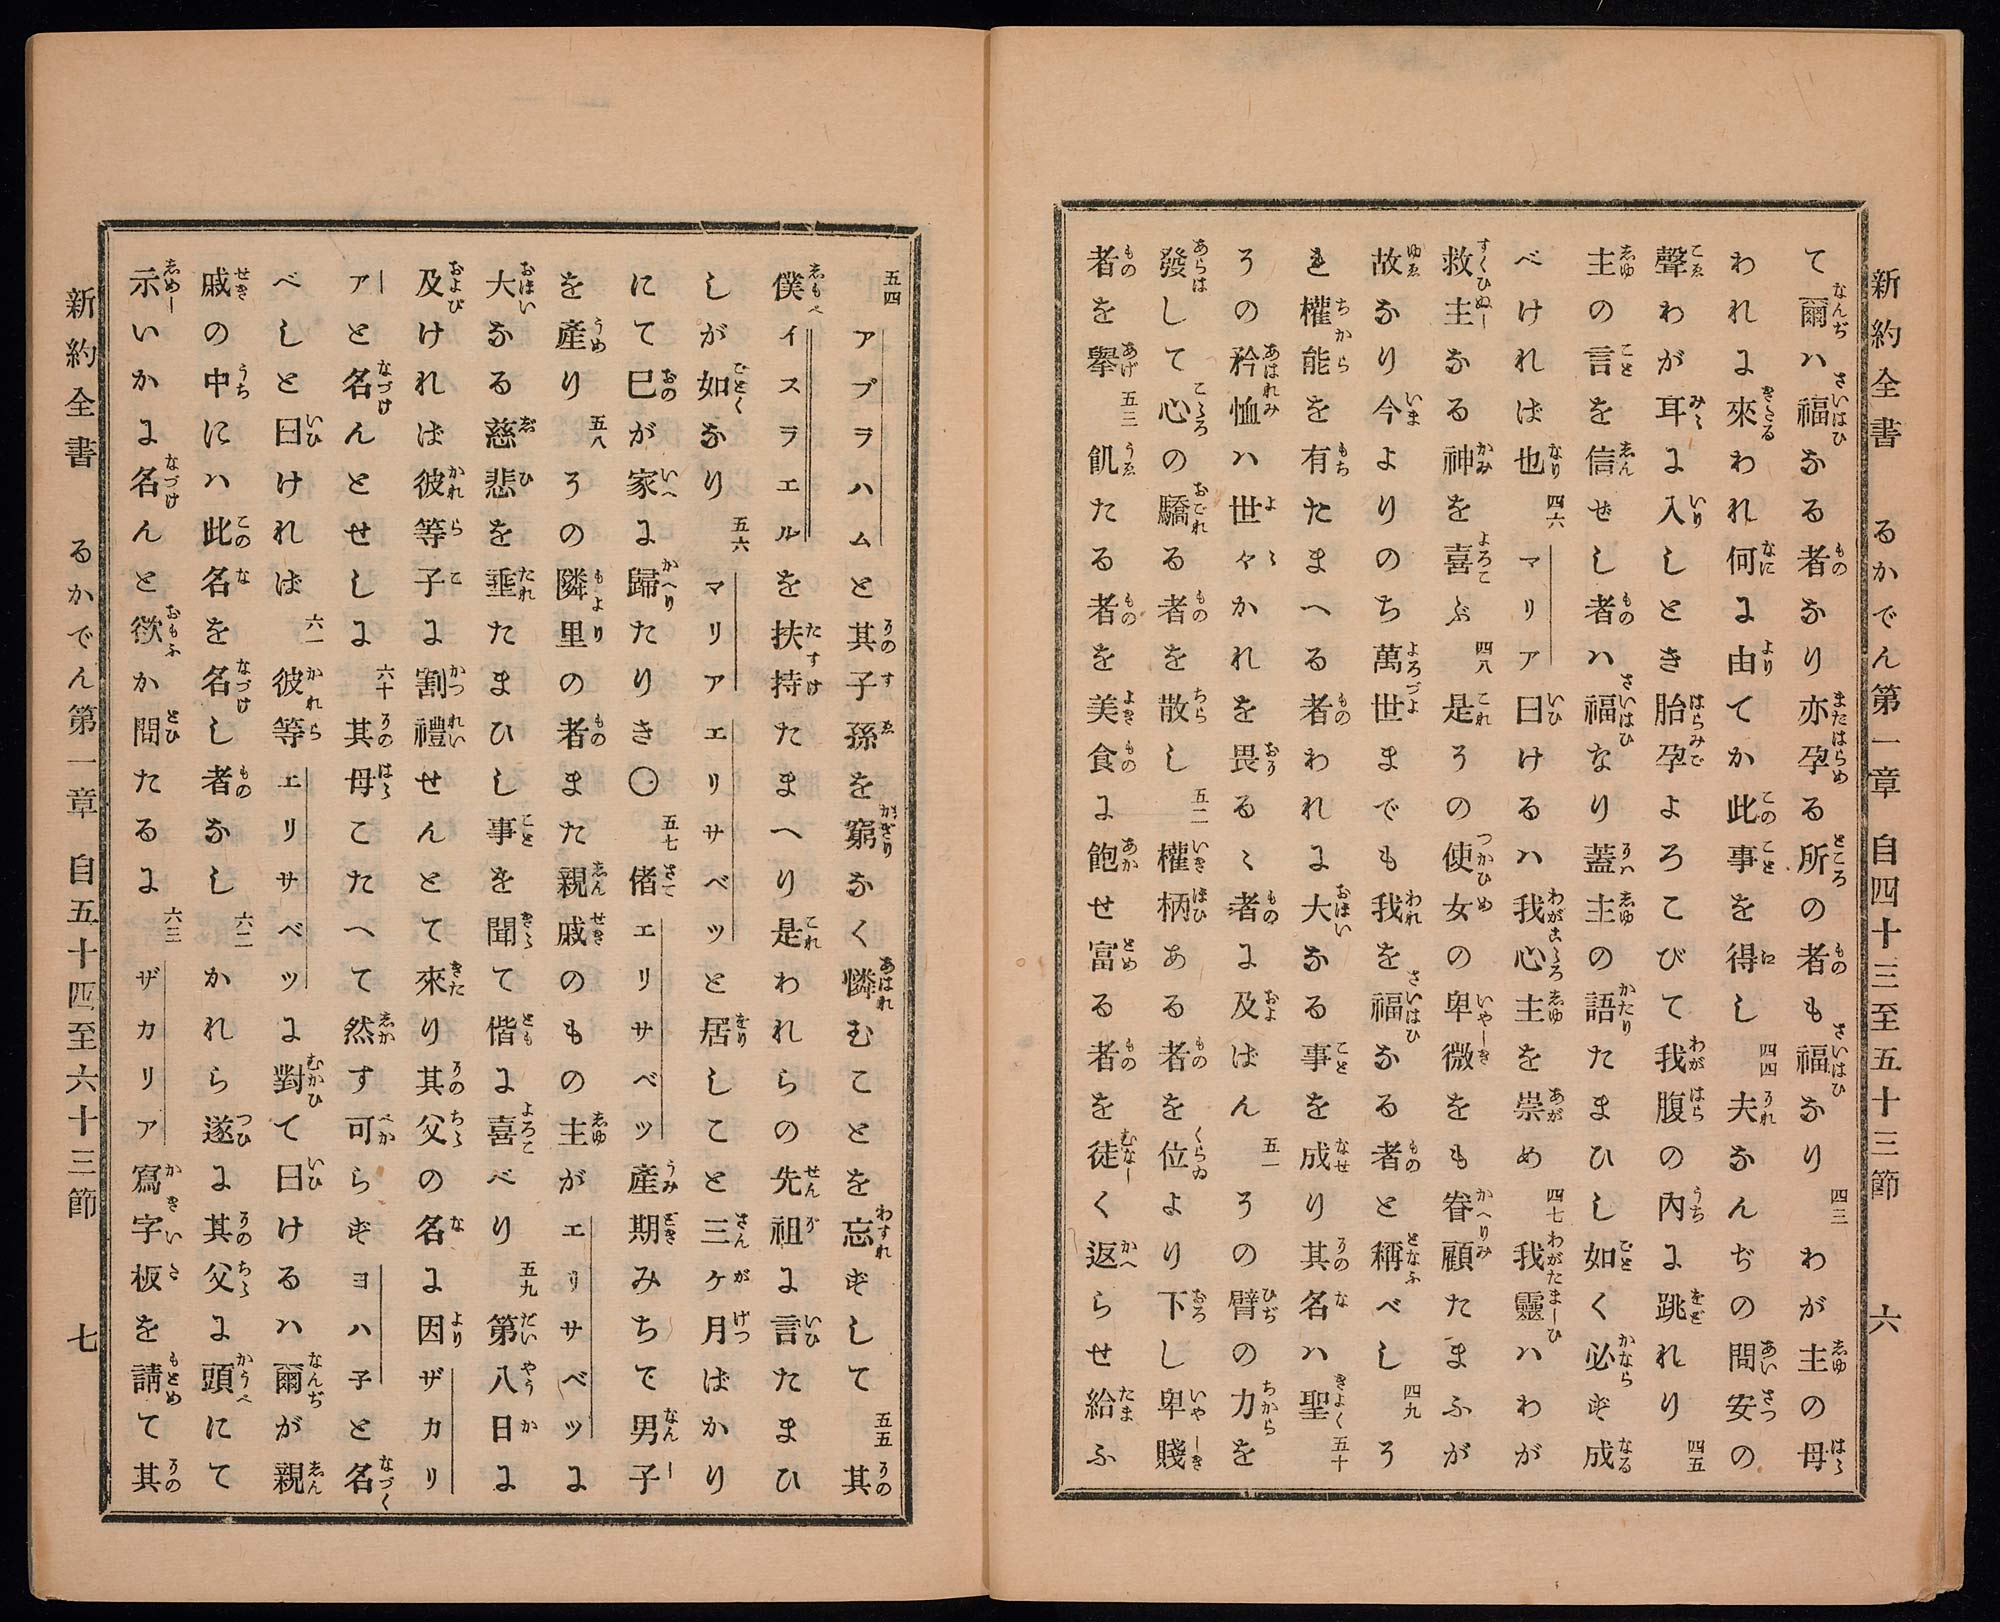 新約全書　るかでん第一章　自四十三至五十三節　六
て爾ハ福なる者なり亦孕める所の者も福なり 四三 わが主の母
われに來るわれ何に由てか此事を得し 四四 夫なんぢの間安の
聲わが耳に入しとき胎孕よろこびて我腹の内に跳れり 四五
主の言を信ぜし者ハ福なり蓋主の語たまひし如く必ず成
べければ也 四六 マリア曰けるハ我心主を崇め 四七 我靈ハわが
救主なる神を喜ぶ 四八 是その使女の卑微をも眷顧たまふが
故なり今よりのち萬世までも我を福なる者と稱べし 四九 そ
れ權能を有たまへる者われに大なる事を成り其名ハ聖 五十
その矜恤ハ世々かれを畏るゝ者に及ばん 五一 その臂の力を
發して心の驕る者を散し 五二 權柄ある者を位より下し卑賤
者を擧 五三 飢たる者を美食に飽せ富る者を徒く返らせ給ふ
新約全書　るかでん第一章　自五十四至六十三節　七
五四 アブラハムと其子孫を窮なく憐むことを忘ずして 五五 其
僕イスラエルを扶持たまへり是われらの先祖に言たまひ
しが如なり 五六 マリアエリサベツと居しこと三ケ月ばかり
にて已が家に歸たりき〇 五七 偖エリサベツ産期みちて男子
を産り 五八 その隣里の者また親戚のもの主がエリサベツに
大なる慈悲を垂たまひし事を聞て偕に喜べり 五九 第八日に
及ければ彼等子に割禮せんとて來り其父の名に因ザカリ
アと名んとせしに 六十 其母こたへて然す可らずヨハ子と名
べしと曰ければ 六一 彼等エリサベツに對て曰けるハ爾が親
戚の中にハ此名を名し者なし 六二 かれら遂に其父に頭にて
示いかに名んと欲か問たるに 六三 ザカリア寫字板を請て其